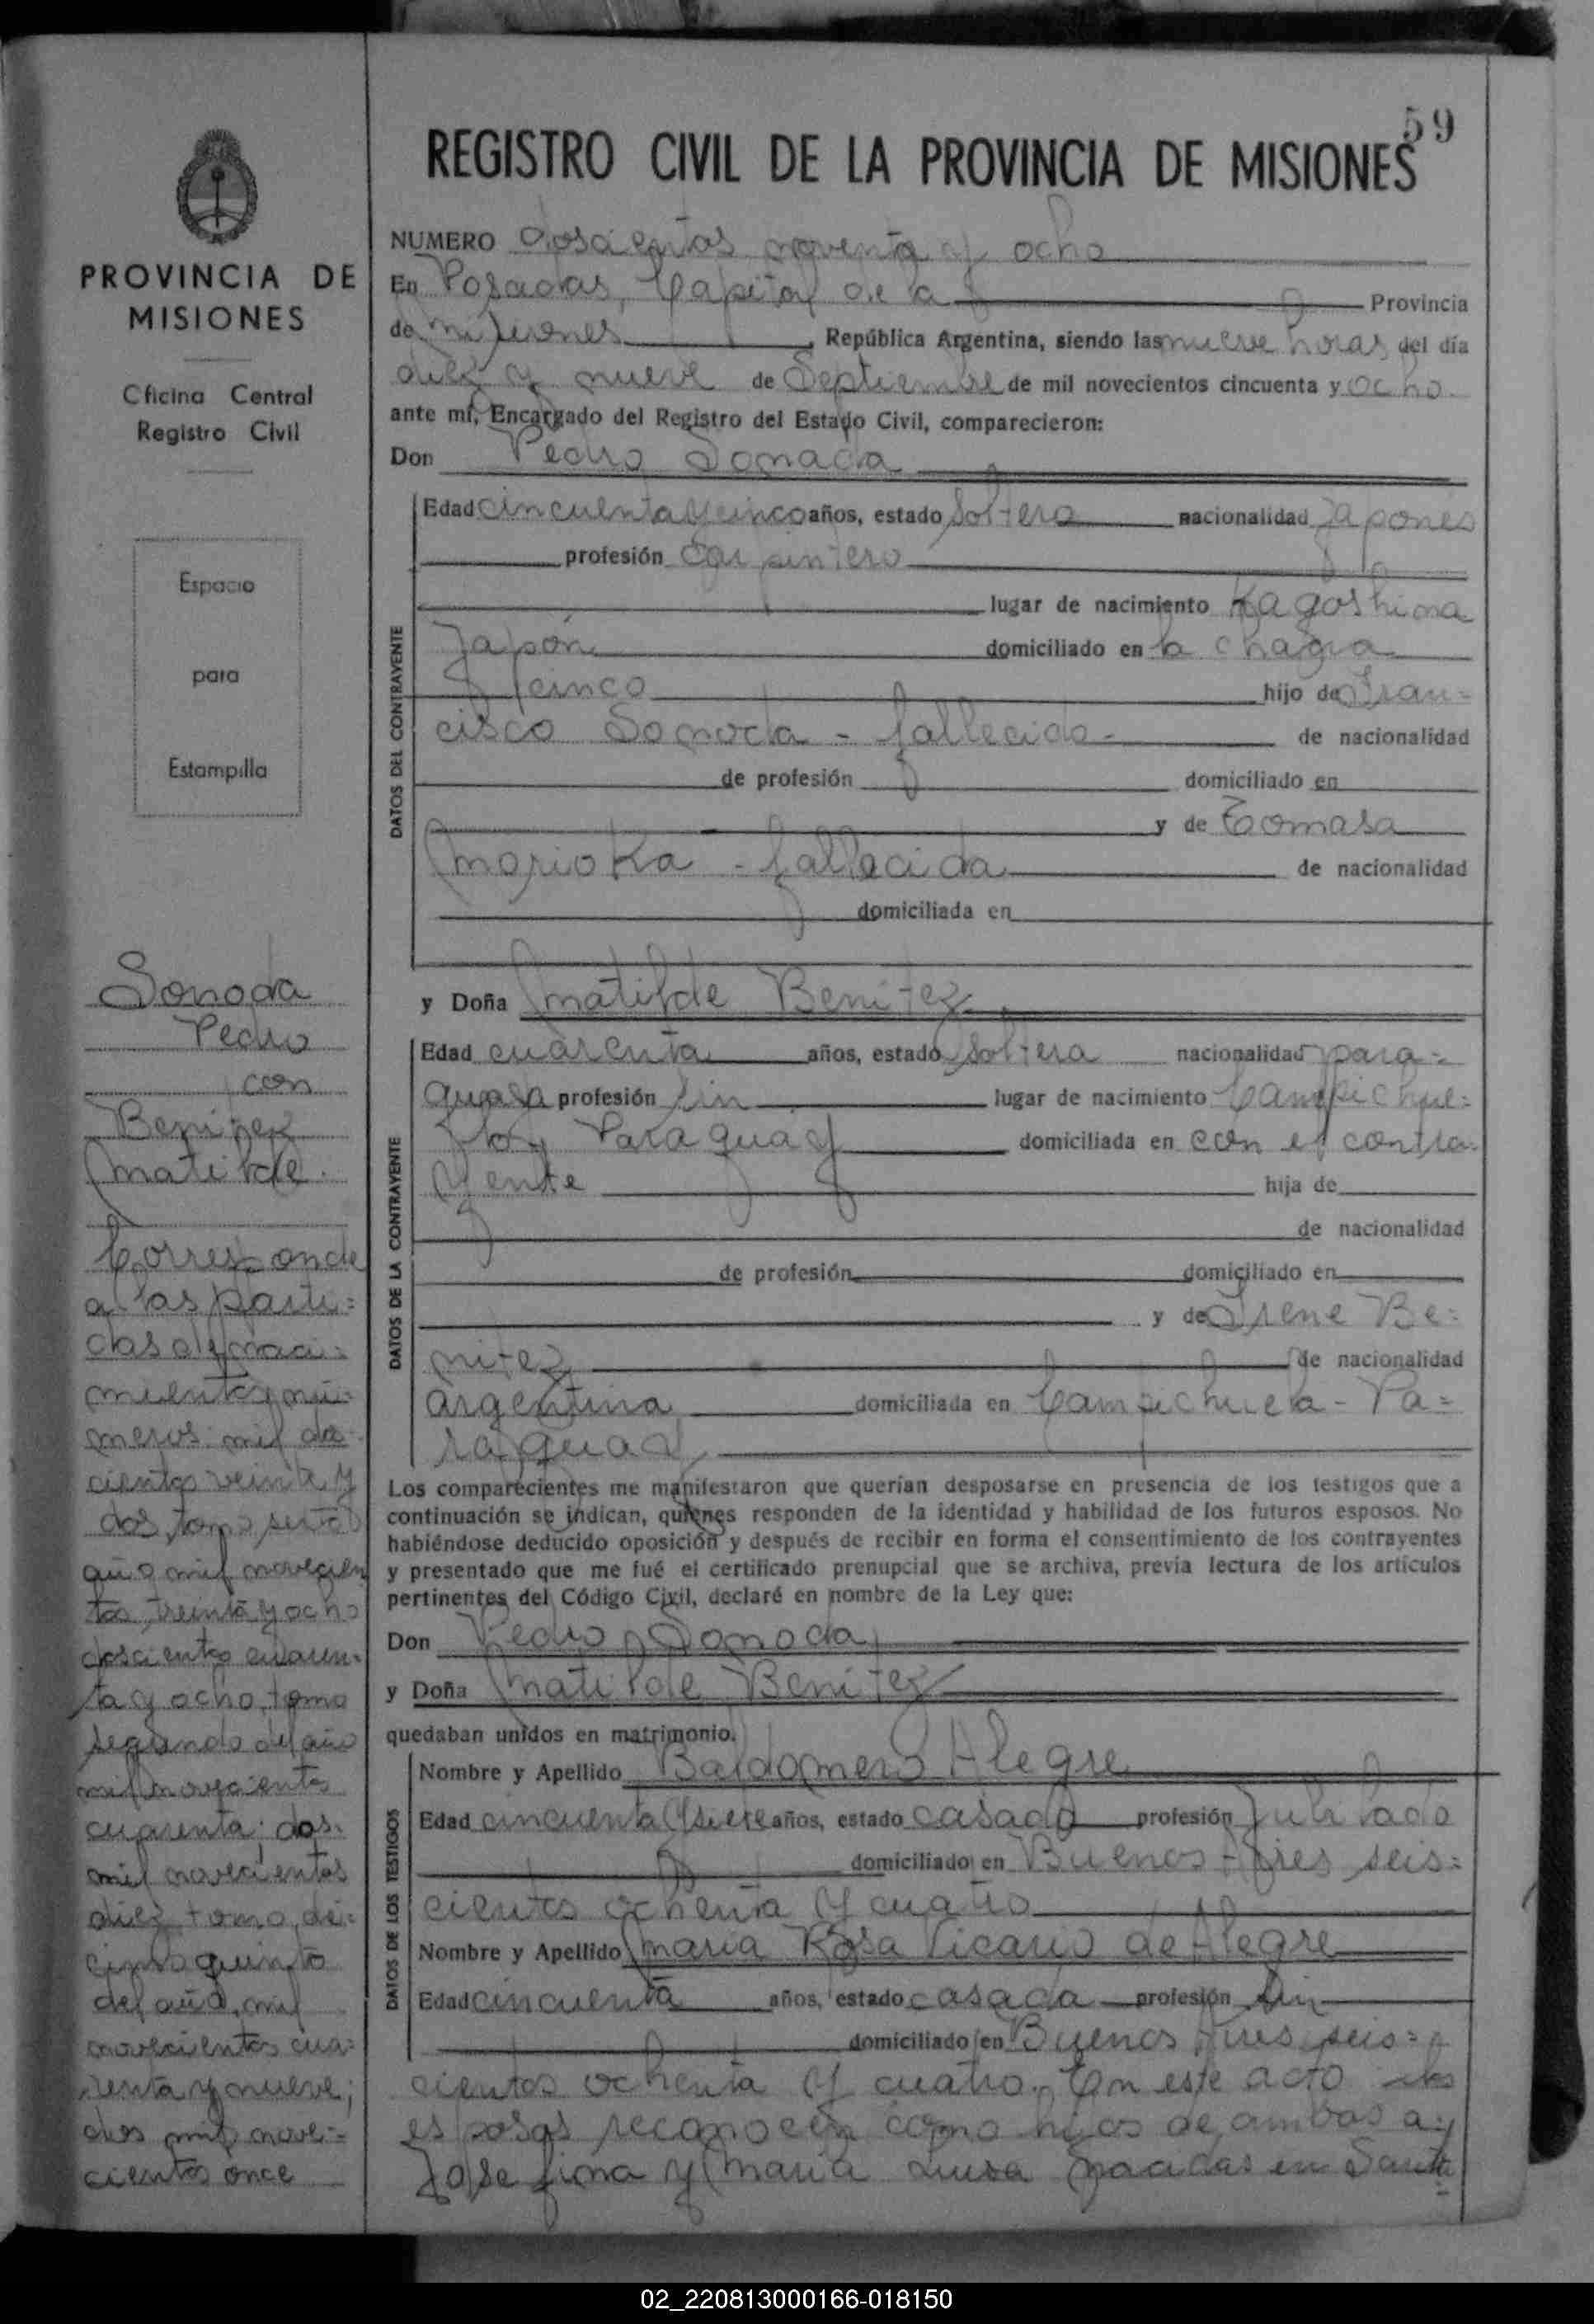 59
REGISTRO CIVIL DE LA PROVINCIA DE MISIONES
PROVINCIA DE
MISIONES
Oficina Central
Registro Civil
Espacio
para
Estampilla
Sonoda
Pedro
con
Benitez
Matilde.
Corresponde
a las parti=
das de naci=
mientos nú=
meros: mil dos
cientos veinte y
dos, tomo sexto
año mil novecien
tos treinta y ocho
doscientos cuaren=
ta y ocho, tomo
segundo del año
mil novecientos
cuarenta; dos
mil novecientos
diez tomo dé=
cimo quinto
del año mil
novecientos cua=
renta y nueve;
dos mil nove=
cientos once
NUMERO doscientos noventa y ocho
En Posadas, Capital de la Provincia
de Misiones, República Argentina, siendo las nueve horas del día
diez y nueve de Septiembre de mil novecientos cincuenta y ocho.
ante mí, Encargado del Registro del Estado Civil, comparecieron:
Don Pedro Sonoda
DATOS DEL CONTRAYENTE
Edad cincuenta y cinco años, estado Soltero nacionalidad japones
profesión Carpintero
lugar de nacimiento Kagoshima
Japón domiciliado en la chacra
cinco hijo de Fran=
cisco Sonoda - fallecido - de nacionalidad
de profesión domiciliado en
y de Tomasa
Morioka - fallecida de nacionalidad
domiciliada en
y Doña Matilde Benitez
DATOS DE LA CONTRAYENTE
Edad cuarenta años, estado Soltera nacionalidad para=
guaya profesión sin lugar de nacimiento Campichue=
lo, Paraguay domiciliada en con el contra=
yente hija de
de nacionalidad
de profesión domiciliado en
y de Irene Be=
nitez de nacionalidad
argentina domiciliada en Campichuelo - Pa=
raguay
Los comparecientes me manifestaron que querían desposarse en presencia de los testigos que a
continuación se indican, quienes responden de la identidad y habilidad de los futuros esposos. No
habiéndose deducido oposición y después de recibir en forma el consentimiento de los contrayentes
y presentado que me fué el certificado prenupcial que se archiva, previa lectura de los artículos
pertinentes del Código Civil, declaré en nombre de la Ley que:
Don Pedro Sonoda
y Doña Matilde Benitez
quedaban unidos en matrimonio.
DATOS DE LOS TESTIGOS
Nombre y Apellido Baldomero Alegre
Edad cincuenta y siete años, estado casado profesión Jubilado
domiciliado en Buenos Aires seis=
cientos ochenta y cuatro
Nombre y Apellido Maria Rosa Vicario de Alegre
Edad cincuenta años, estado casada profesión sin
domiciliado en Buenos Aires seis=
cientos ochenta y cuatro. En este acto los
esposos reconocen como hijos de ambos a:
Josefina y Maria Luisa nacidas en Santa
02_220813000166-018150